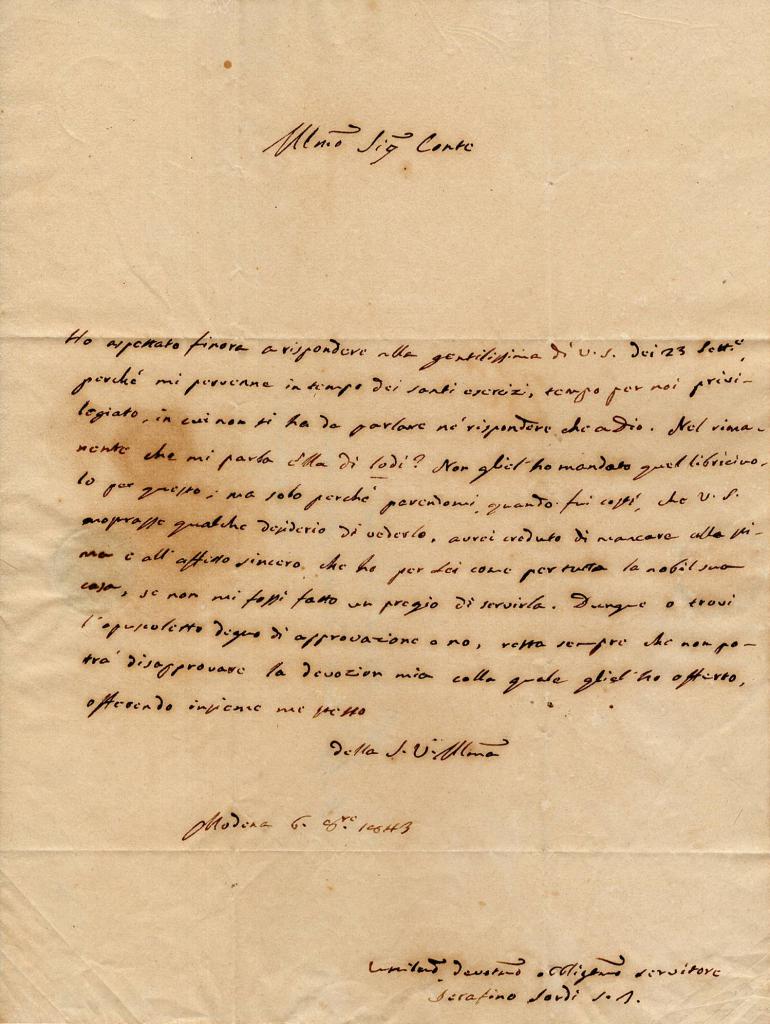 Illmo Sig Conte
Ho aspettato finora a rispondere alla gentilissima di V. S. dei 23 Sett.e,
perché mi pervenne in tempo dei santi esercizi, tempo per noi privi-
legiato, in cui non si ha da parlare né rispondere che a Dio. Nel rima-
nente che mi parla Ella di lodi? Non gliel' ho mandato quel libricciuo-
lo per questo; ma solo perché parendomi, quando fui costì, che V. S.
mostrasse qualche desiderio di vederlo, avrei creduto di mancare alla sti-
ma e all' affetto sincero, che ho per Lei come per tutta la nobil sua
casa, se non mi fossi fatto un pregio di servirla. Dunque o trovi
l'opuscoletto degno di approvazione o no, resta sempre che non po-
trà disapprovare la devozion mia colla quale gliel' ho offerto,
offerendo insieme me stesso
della S. V. Illma
Modena 6. 8re. 1843
umilmo devotmo obbligmo servitore
Serafino Sordi S. J.